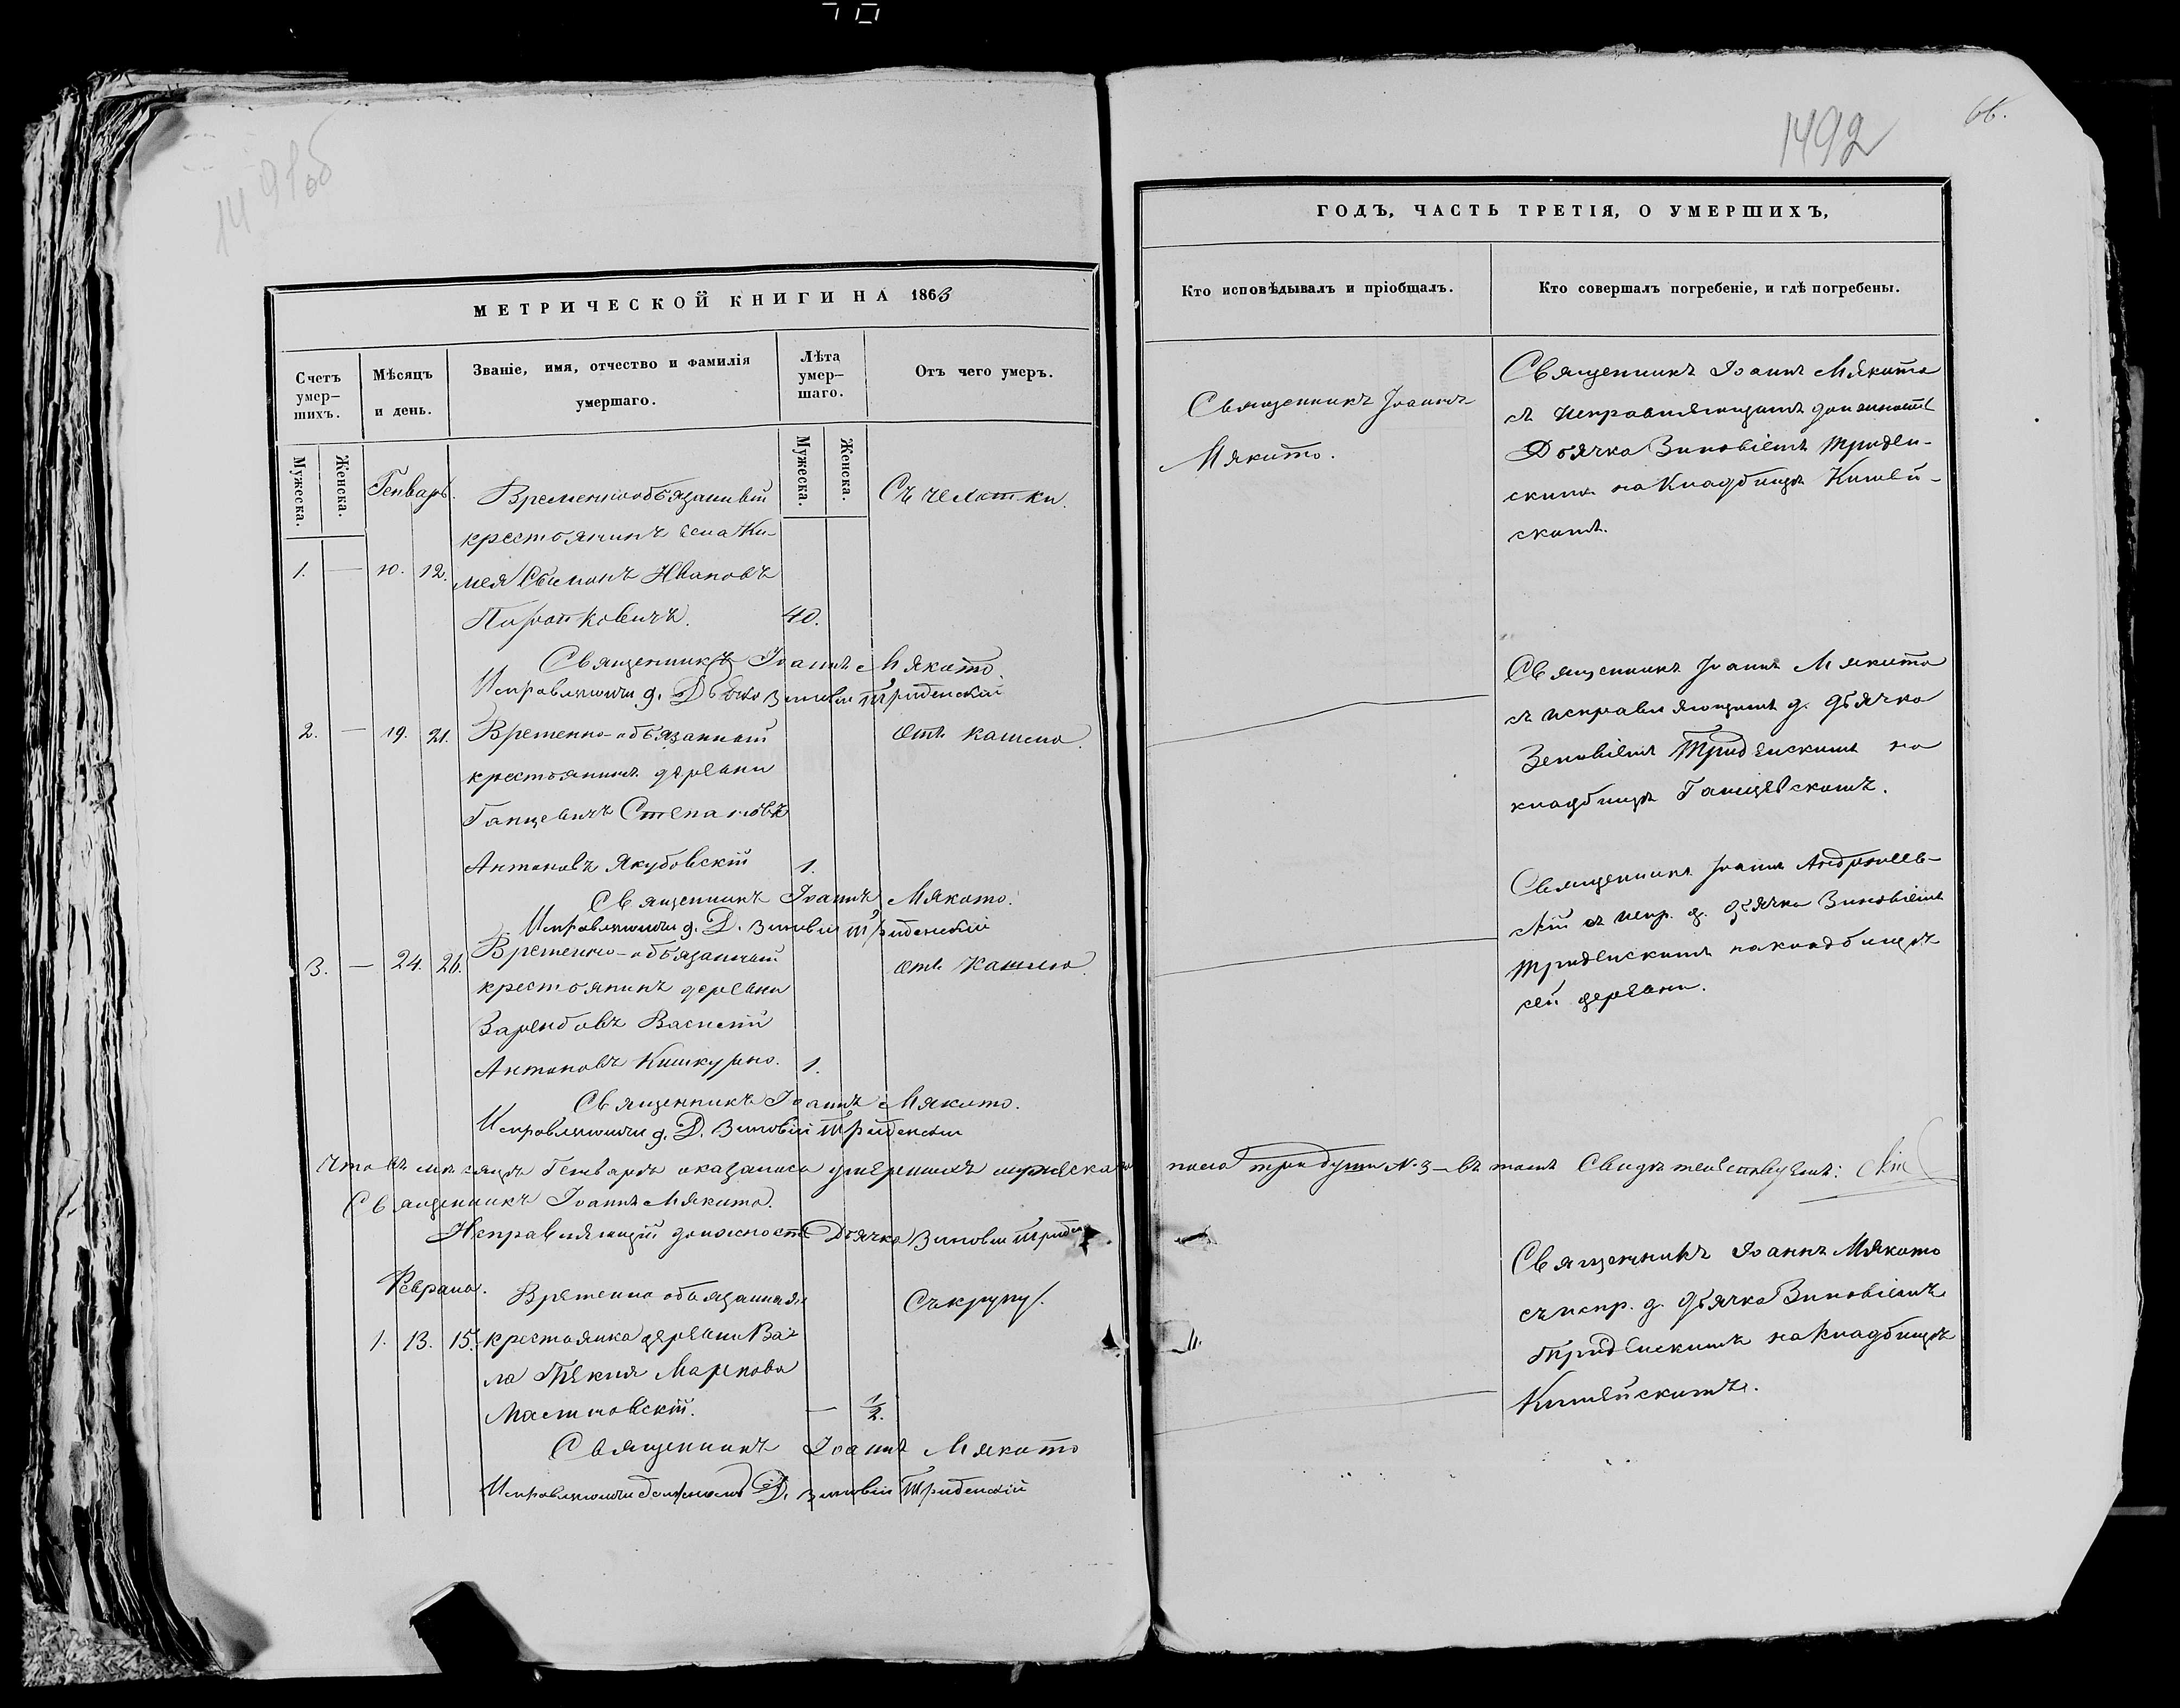 1491об
МЕТРИЧЕСКОЙ КНИГИ НА 1863
Счетъ умер-шихъ.
Мѣсяцъ и день.
Званіе, имя, отчество и фамилія умершаго.
Лѣта умер-шаго.
Отъ чего умеръ.
Мужеска.
Женска.
Мужеска.
Женска.
Генварь.
Временнообязанный
Съ чехотки.
крестьянинъ села Ки-
1. — 10. 12. мея Симонъ Ивановъ
40.
Священникъ Іоаннъ Мякото
Исправляющій д. Дьячка Зиновій Триденскій
2. — 19. 21. Временно-обязанный
Отъ кашлю.
крестьянинъ деревни
Ганцевичъ Степанъ
Антоновъ Якубовскій 1.
Священникъ Іоаннъ Мякото.
Исправляющій д. Д. Зиновій Триденскій
3. — 24. 26. Временно-обязанный
Отъ кашлю.
крестьянинъ деревни
Зарембовъ Василій
Антоновъ Кишкурно. 1.
Священникъ Іоаннъ Мякото.
Исправляющій д. Д. Зиновій Триденскій
Что въ мѣсяцѣ Генварѣ оказалось умершихъ мужеска
Священникъ Іоаннъ Мякото.
Исправляющій должность Дьячка Зиновій
Февраль.
Временно обязанная
Съ крупу.
1. 13. 15. крестьянка деревни Ва-
ла Ѳекла Маркова
— 1/2.
Священникъ Іоаннъ Мякото
Исправляющій должность Д. Зиновій Триденскій
1492
66.
ГОДЪ, ЧАСТЬ ТРЕТІЯ, О УМЕРШИХЪ,
Кто исповѣдывалъ и пріобщалъ.
Кто совершалъ погребеніе, и гдѣ погребены.
Священникъ Іоаннъ
Мякото.
Священникъ Іоаннъ Мякото
съ исправляющимъ должность
Дьячка Зиновіемъ Триден-
скимъ на кладбищѣ Кимей-
скомъ.
Священникъ Іоаннъ Мякото
съ исправляющимъ д. дьячка
Зеновіемъ Триденскимъ на
кладбищѣ Ганцевскомъ.
Священникъ Іоаннъ
съ испр. д. дьячка Зиновіемъ
Триденскимъ на кладбищѣ
сей деревни.
пола три души № 3 — въ томъ свидѣтельствуемъ:
Священникъ Іоаннъ Мякото
съ испр. д. дьячка Зиновіемъ
Триденскимъ на кладбищѣ
Кимейскомъ.